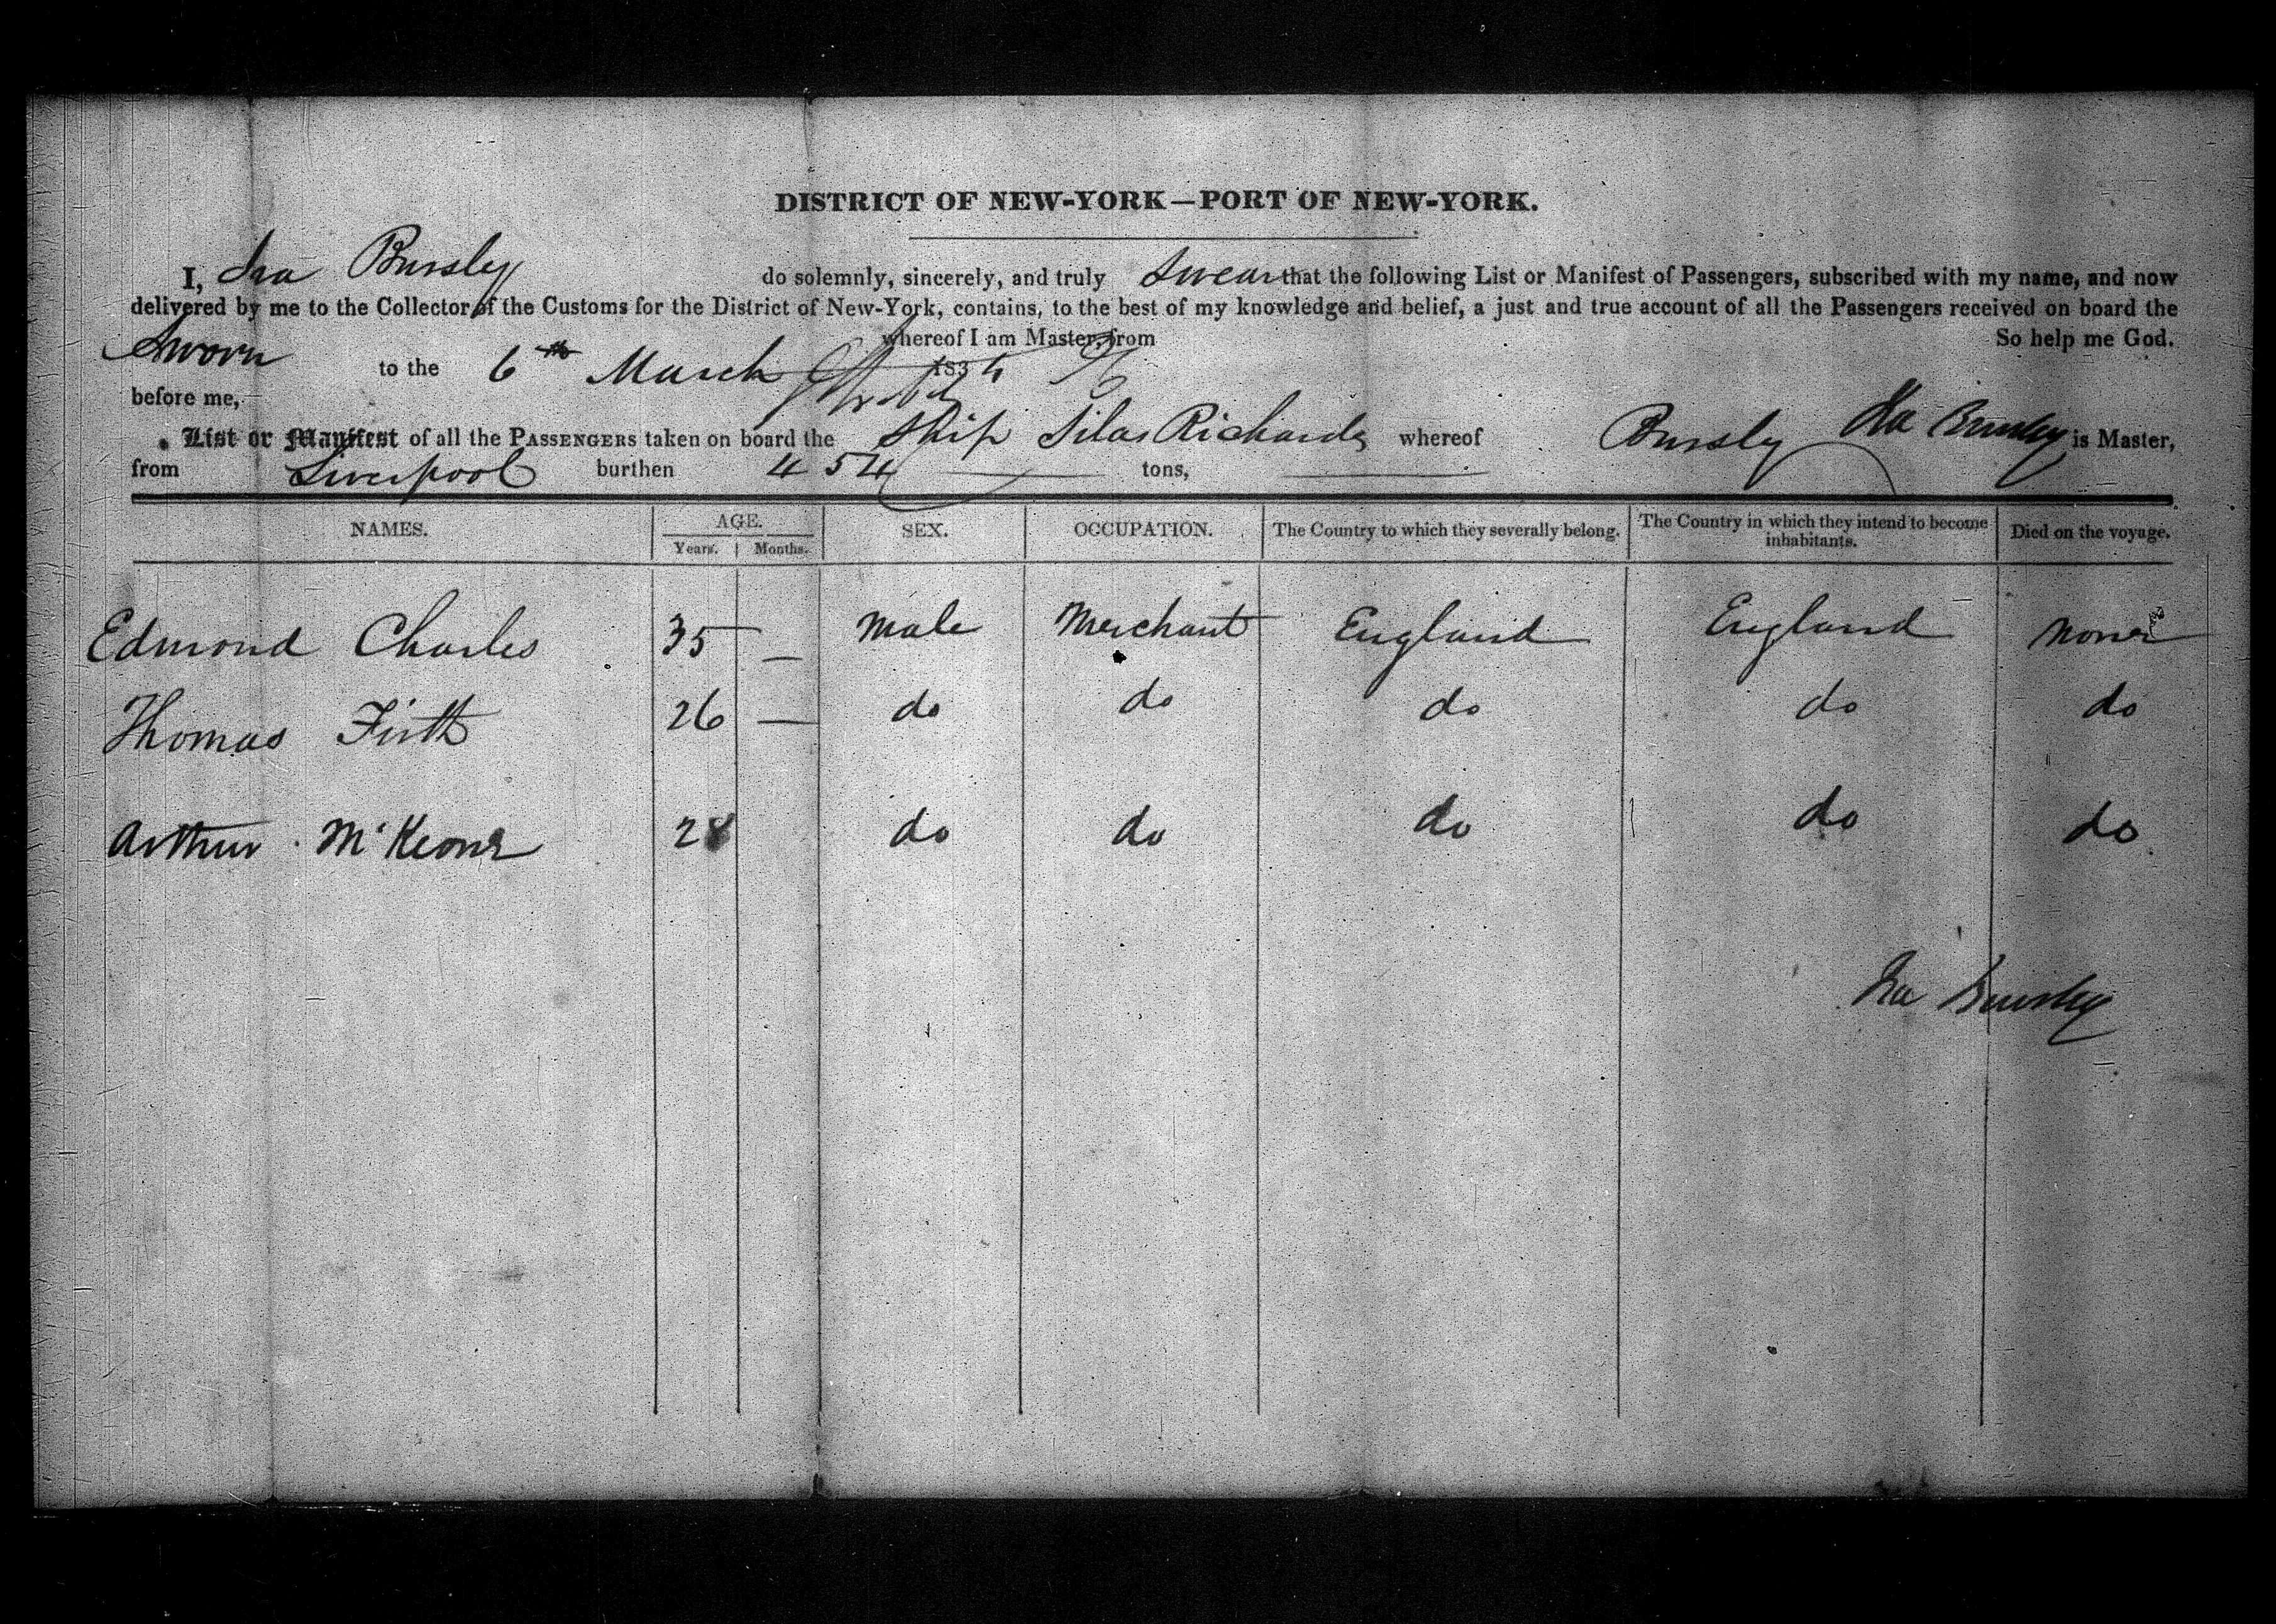 DISTRICT OF NEW-YORK—PORT OF NEW-YORK.
I, Ira Bursley do solemnly, sincerely, and truly Swear that the following List or Manifest of Passengers, subscribed with my name, and now
delivered by me to the Collector of the Customs for the District of New-York, contains, to the best of my knowledge and belief, a just and true account of all the Passengers received on board the
whereof I am Master, from So help me God.
Sworn to the 6th March 1834
before me,
Ira Bursley
List or Manifest of all the PASSENGERS taken on board the Ship Silas Richards whereof Bursley is Master,
from Liverpool burthen 454 tons,
NAMES. AGE. SEX. OCCUPATION. The Country to which they severally belong. The Country in which they intend to become inhabitants. Died on the voyage.
Years. Months.
Edmond Charles 35 — Male Merchant England England None
Thomas Firth 26 — do do do do do
Arthur McKeone 28 do do do do do
Ira Bursley